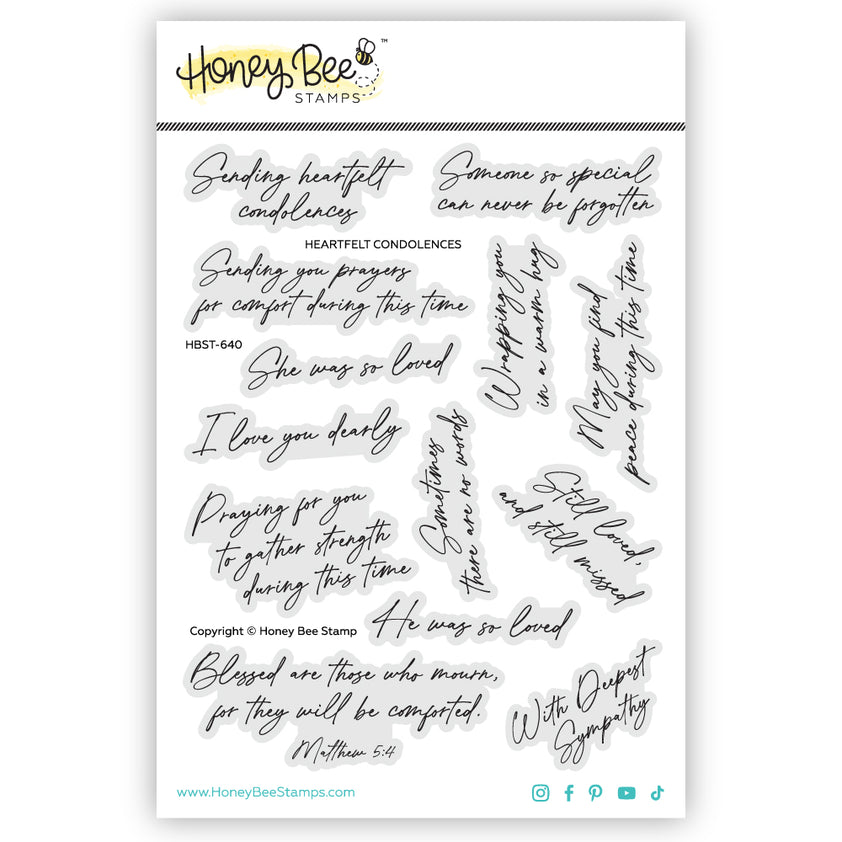 Honey Bee
STAMPS
™
Sending heartfelt
condolences
Someone so special
can never be forgotten
HEARTFELT CONDOLENCES
Sending you prayers
for comfort during this time
Wrapping you
in a warm hug
May you find
peace during this time
HBST-640
She was so loved
I love you dearly
Sometimes
there are no words
Still loved,
and still missed
Praying for you
to gather strength
during this time
He was so loved
Copyright © Honey Bee Stamp
Blessed are those who mourn,
for they will be comforted.
Matthew 5:4
With Deepest
Sympathy
www.HoneyBeeStamps.com